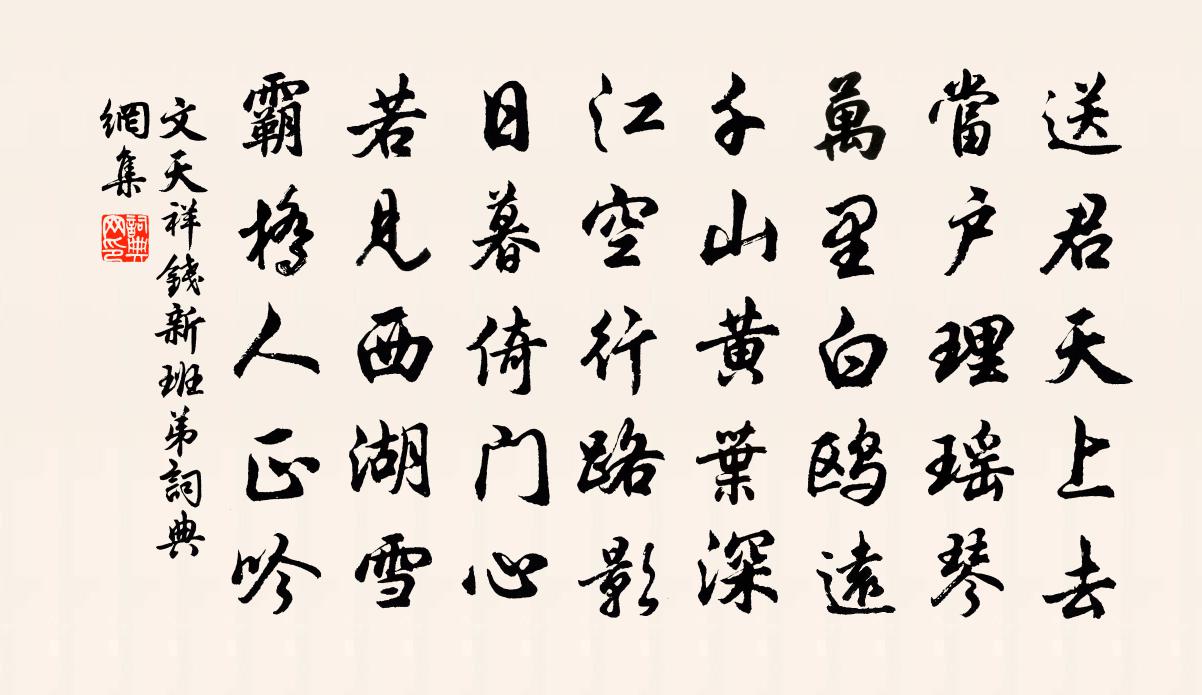 送君天上去
當户理瑶琴
萬里白鸥遠
千山黄葉深
江空行路影
日暮倚门心
若見西湖雪
霸橋人正吟
文天祥錢新班弟詞典
網集
詞典
网印